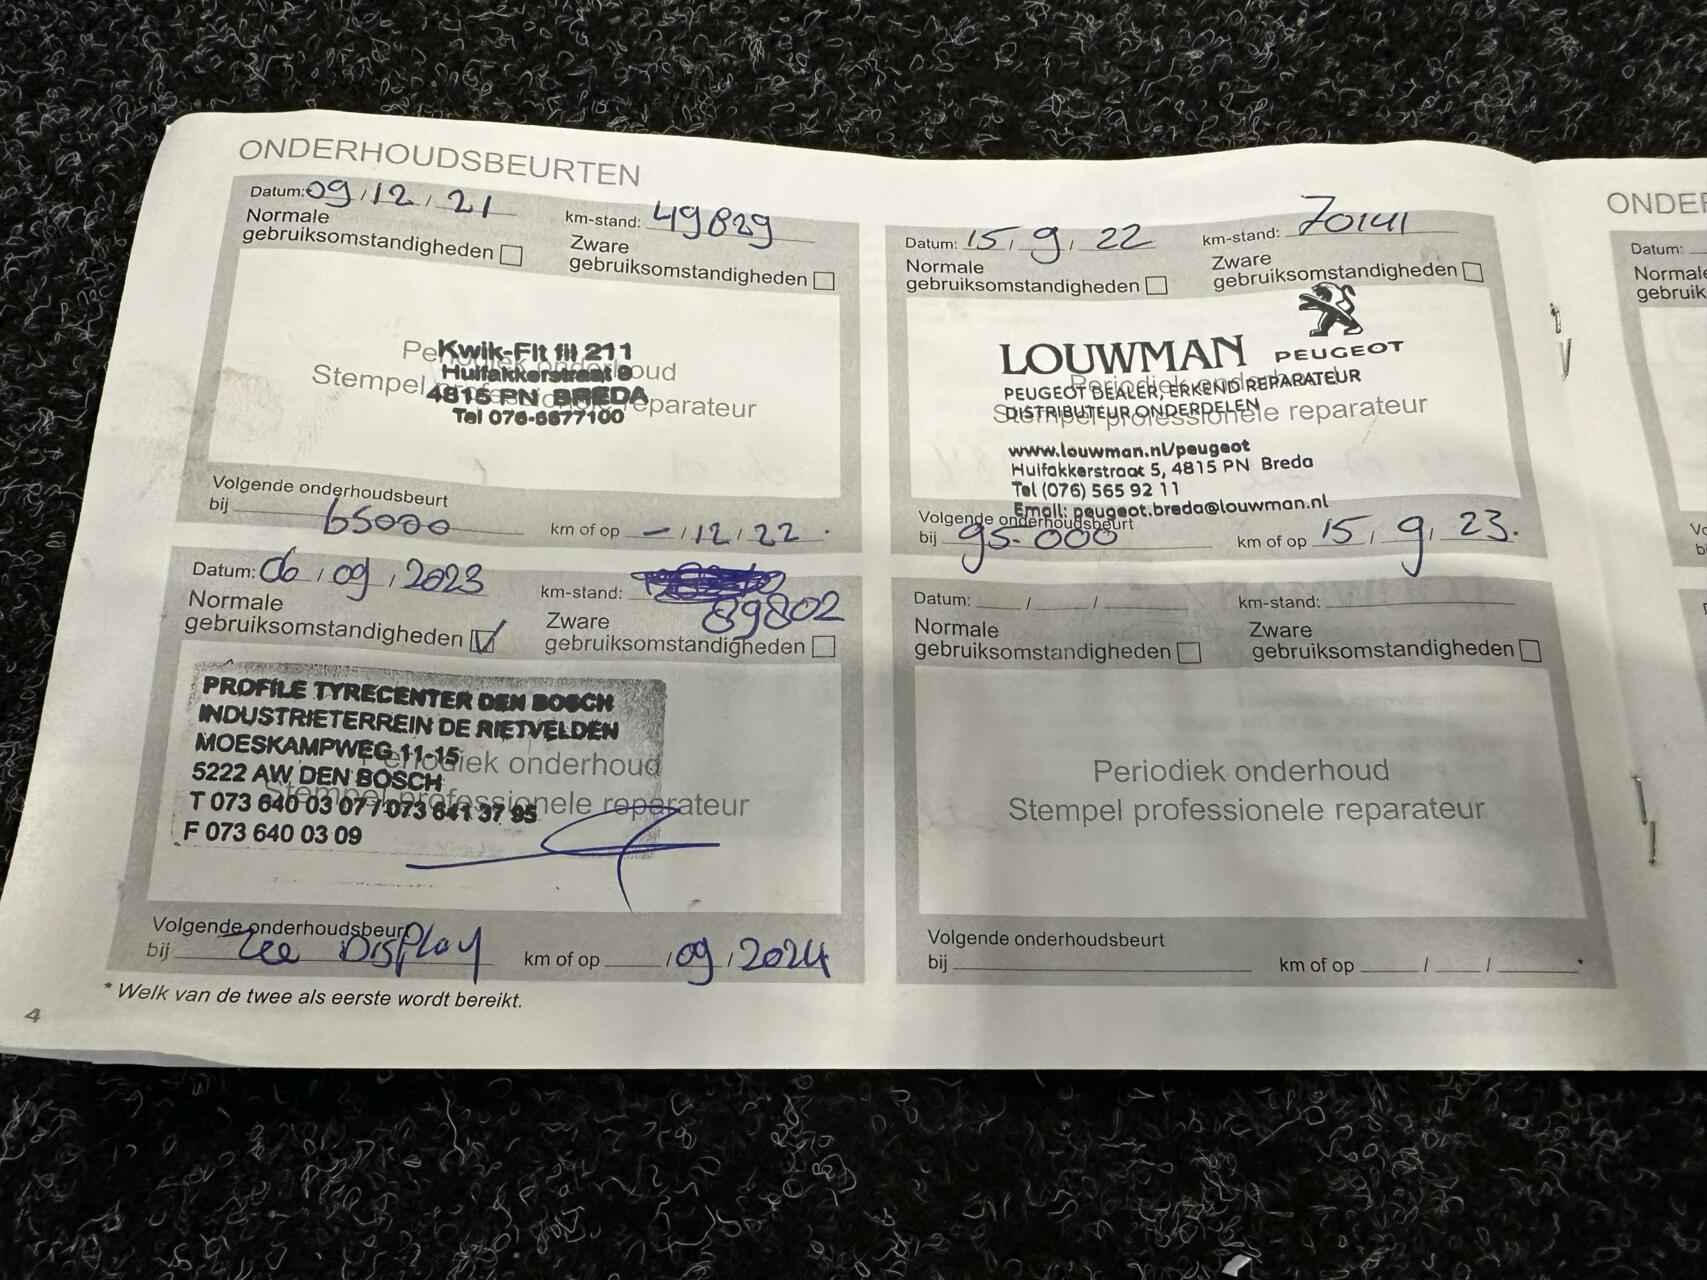 ONDERHOUDSBEURTEN
Datum: 09 / 12 / 21 km-stand: 49829
Normale gebruiksomstandigheden
Zware gebruiksomstandigheden
Periodiek onderhoud
Stempel professionele reparateur
Kwik-Fit fil 211
Hulfakkerstraat
4815 PN BREDA
Tel 076-
Volgende onderhoudsbeurt
bij 65000 km of op - / 12 / 22 .
Datum: 15 / 9 / 22 km-stand: 70141
Normale gebruiksomstandigheden
Zware gebruiksomstandigheden
LOUWMAN PEUGEOT
PEUGEOT DEALER, ERKEND REPARATEUR
DISTRIBUTEUR ONDERDELEN
Periodiek onderhoud
Stempel professionele reparateur
www.louwman.nl/peugeot
Hulfakkerstraat 5, 4815 PN Breda
Tel (076) 565 92 11
Email: peugeot.breda@louwman.nl
Volgende onderhoudsbeurt
bij 95.000 km of op 15 / 9 / 23.
Datum: 06 / 09 / 2023 km-stand: 89802
Normale gebruiksomstandigheden
Zware gebruiksomstandigheden
PROFILE TYRECENTER DEN BOSCH
INDUSTRIETERREIN DE RIETVELDEN
MOESKAMPWEG 11-15
5222 AW DEN BOSCH
T 073 640 03 07 / 073 641 37 95
F 073 640 03 09
Periodiek onderhoud
Stempel professionele reparateur
Volgende onderhoudsbeurt
bij Zee DISPLay km of op / 09 / 2024
Datum: / / km-stand:
Normale gebruiksomstandigheden
Zware gebruiksomstandigheden
Periodiek onderhoud
Stempel professionele reparateur
Volgende onderhoudsbeurt
bij km of op / / *
* Welk van de twee als eerste wordt bereikt.
4
ONDER
Datum:
Normale
gebruik